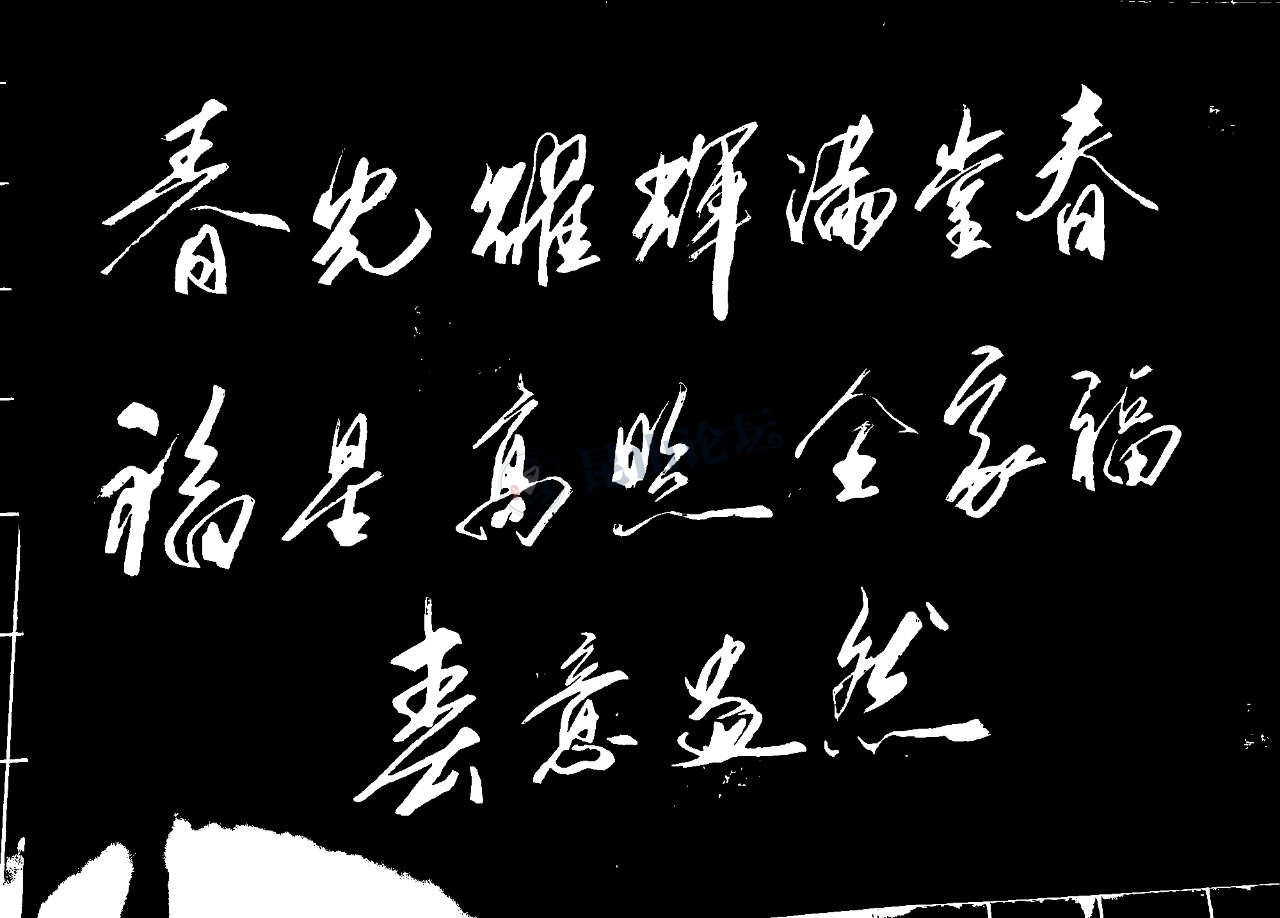 春光耀辉满堂春
福星高照全家福
春意盎然
昆山论坛